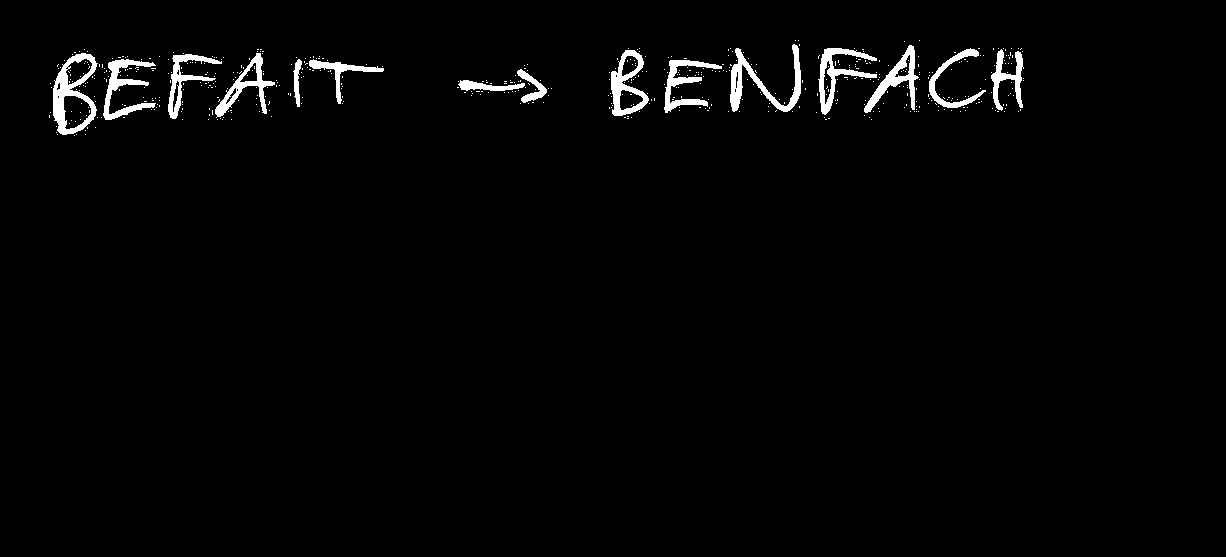 BEFAIT → BENFACH